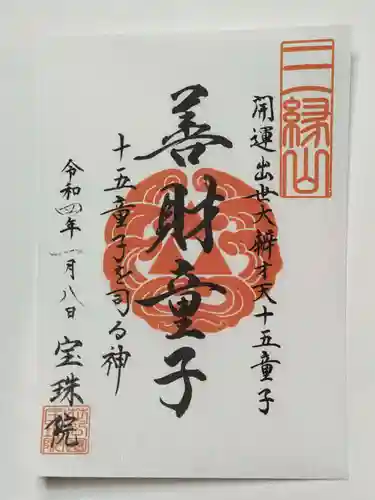 三縁山
開運出世大辨才天十五童子
善財童子
十五童子を司る神
令和四年一月八日 宝珠院